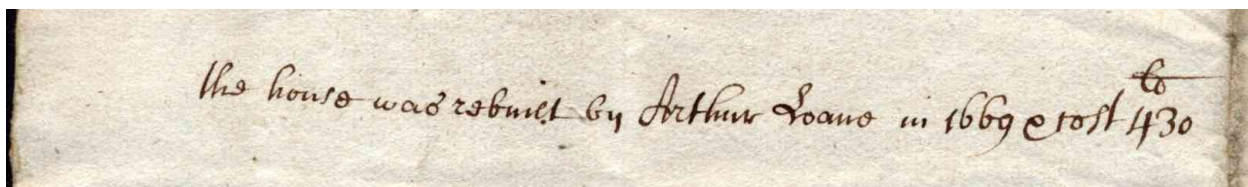 the house was rebuilt by Arthur Loane in 1669 & cost 430